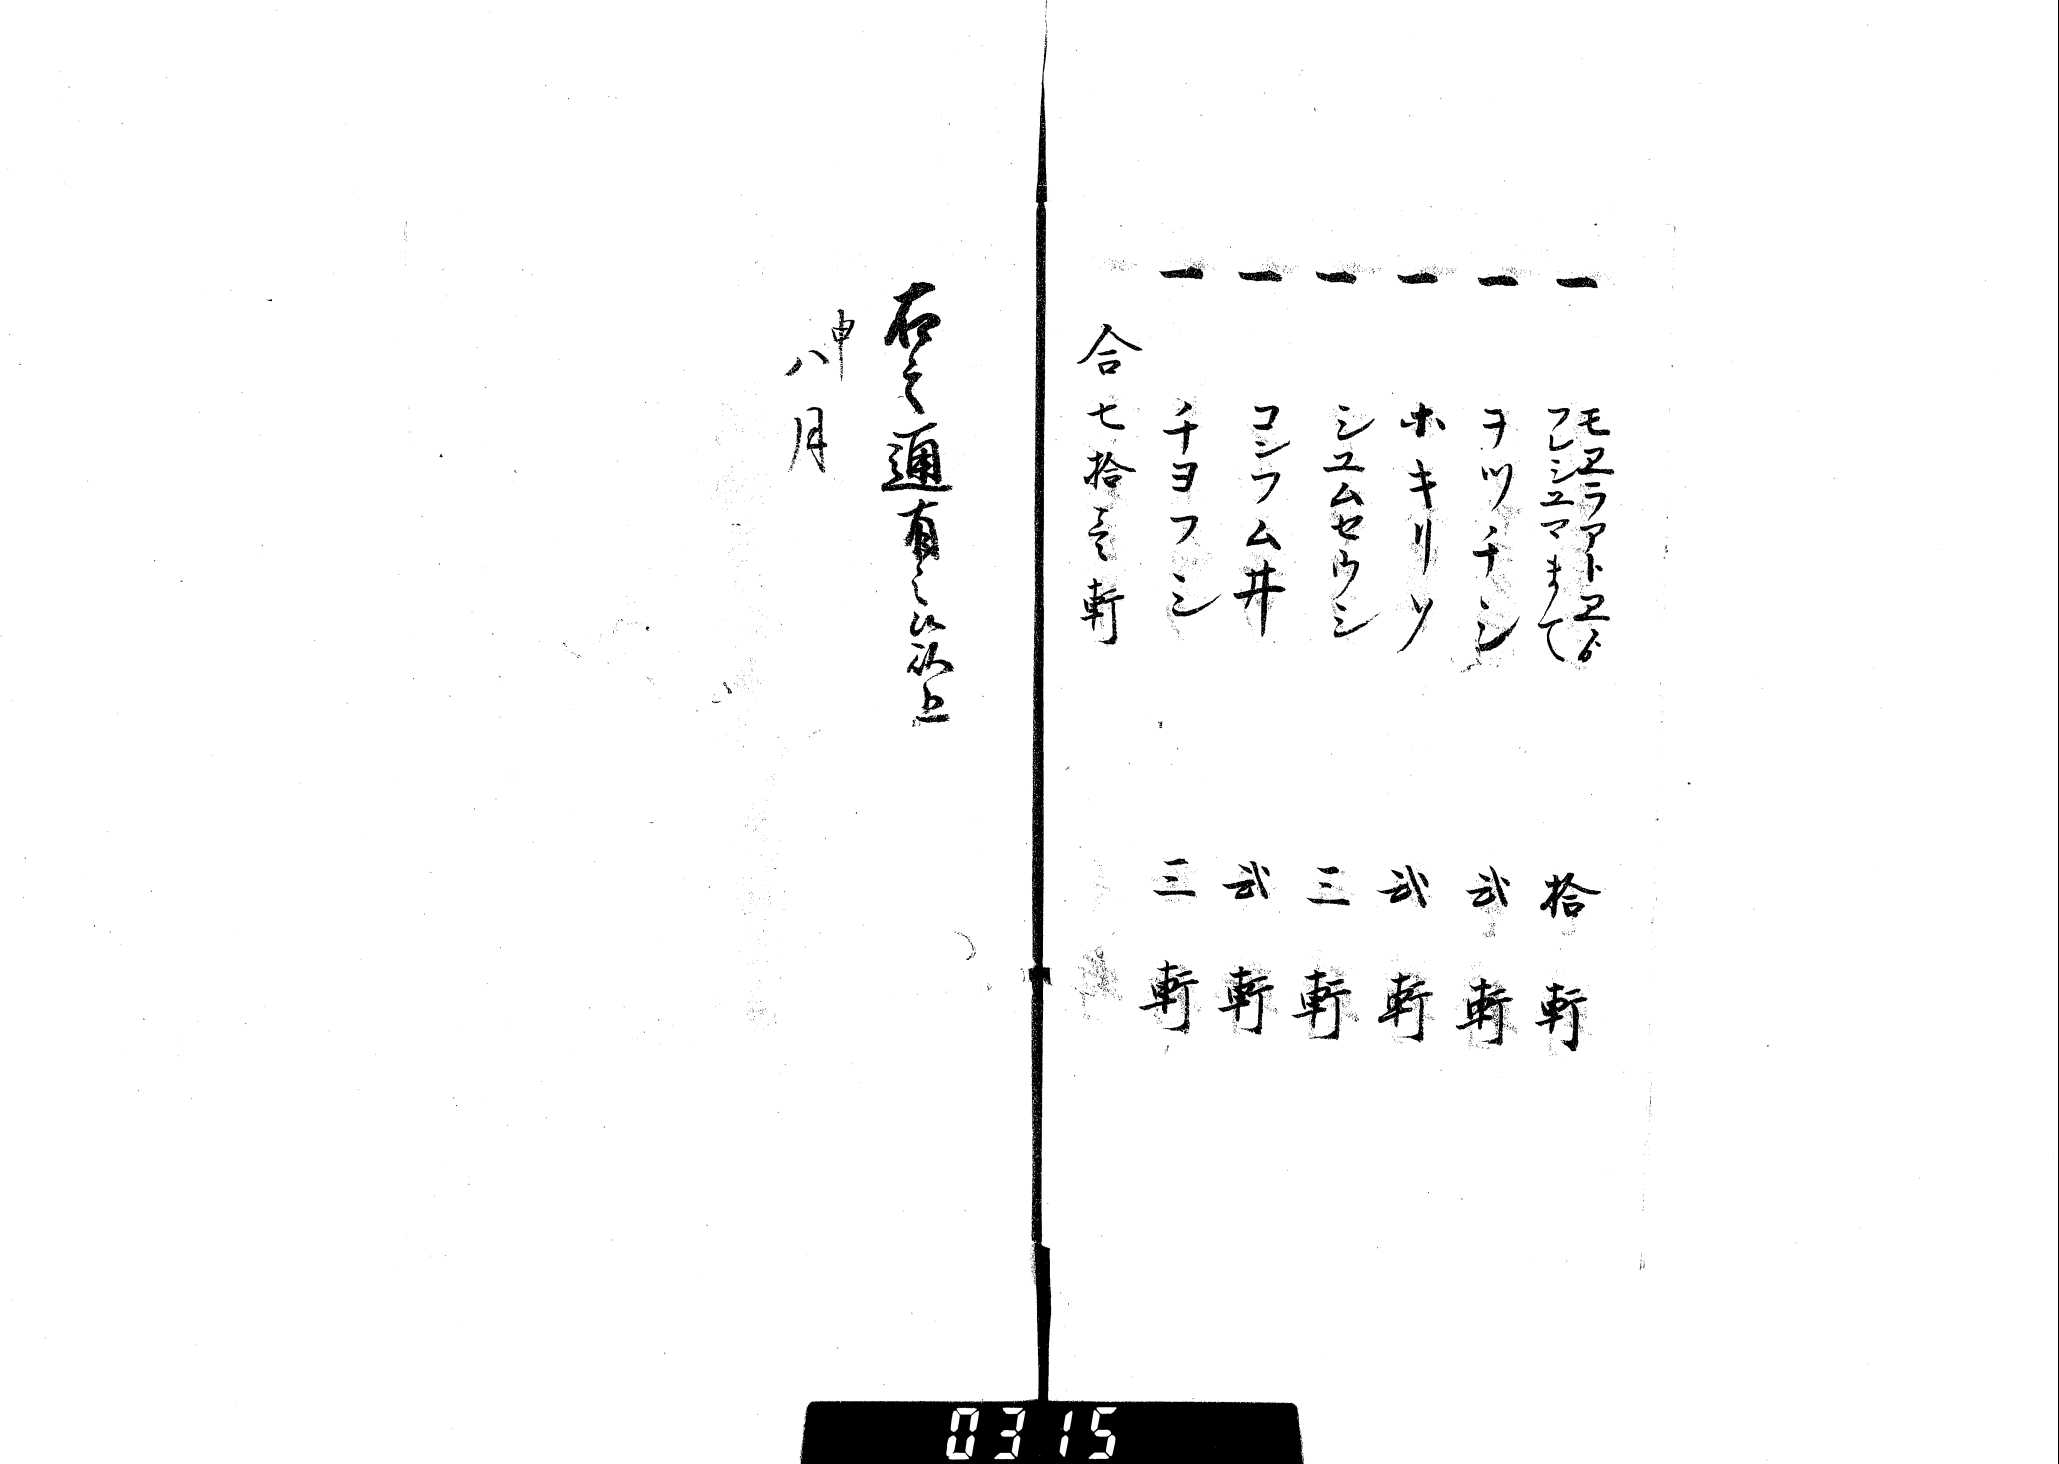 一 モヱラアトヱゟ
フレシユマまて 拾軒
一 ヲツチシ 弐軒
一 ホキリソ 弐軒
一 シユムセウシ 三軒
一 コシフム井 弐軒
一 チヨフシ 三軒
合七拾壱軒
右之通有之候以上
申
八月
0315